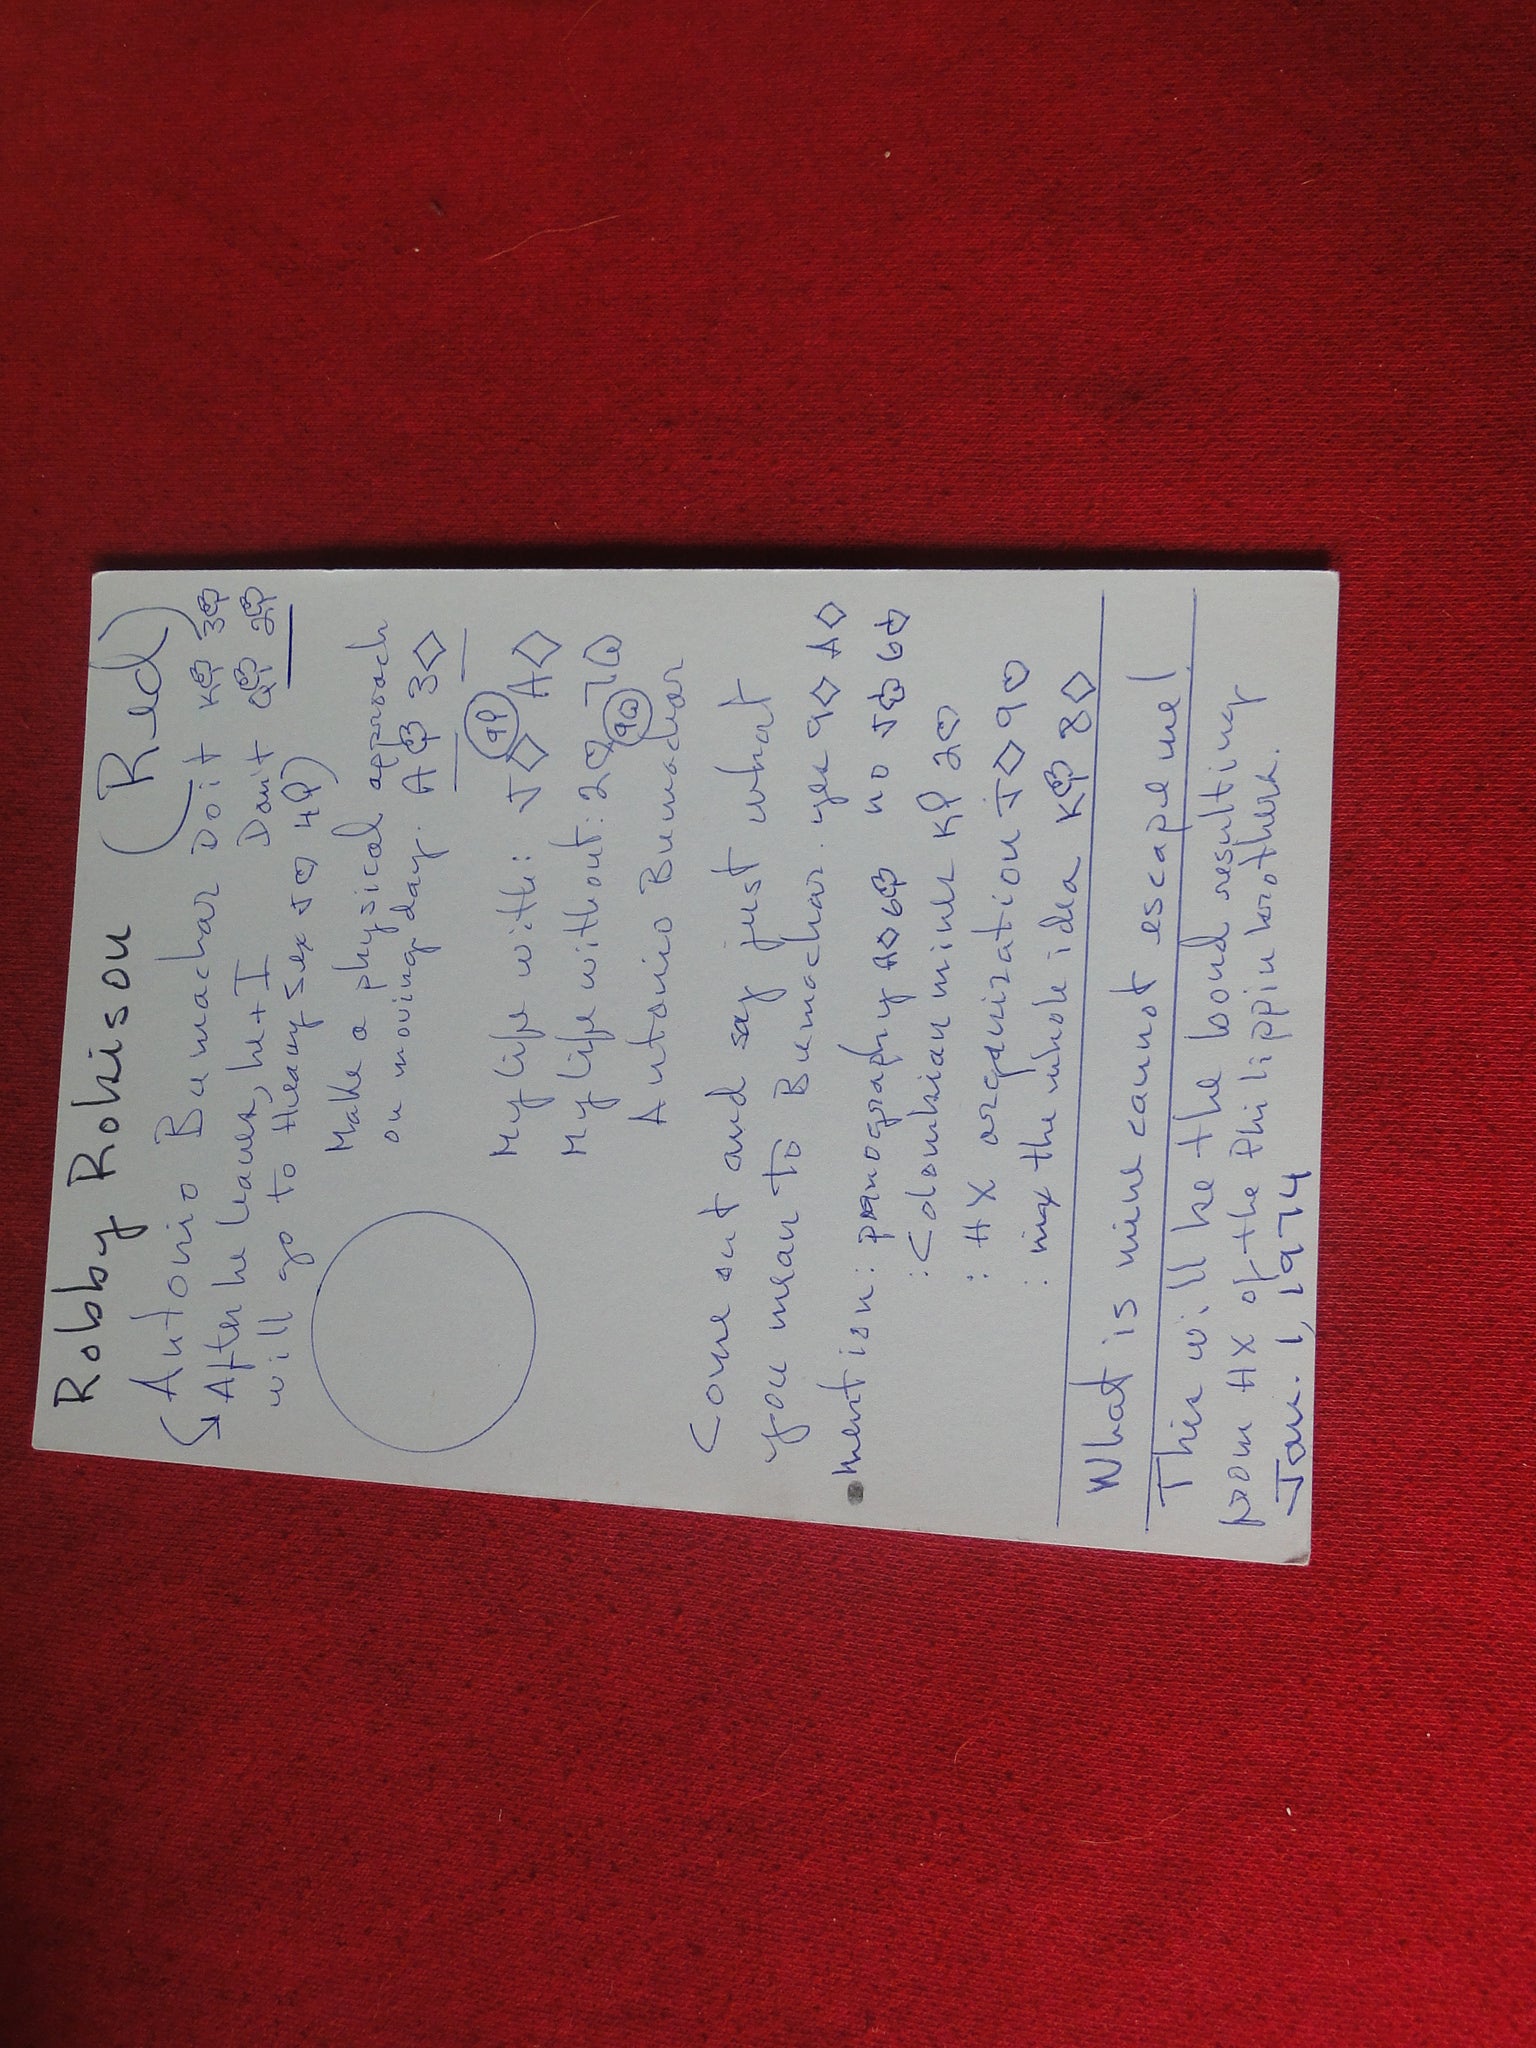 Robby Robison (Red)
Antonio Bumachar Do it K♣ 3♣
After he leaves, he + I Don't Q♣ 2♣
will go to theary sex J♡ 4
Make a physical approach
on moving day. A♣ 3◇
My life with: J◇ A◇
My life without: 2♡ 7
Antonio Bumachar
Come out and say just what
you mean to Bumachar. yes 9◇ A◇
mention: pornography A◇ 6♣ no J♣ 6
: Colombian mines K 2♡
: HX organization J◇ 9♡
: nix the whole idea K♣ 8◇
What is mine cannot escape me!
This will be the bond resulting
from HX of the Philippin brothers.
Jan. 1, 1974